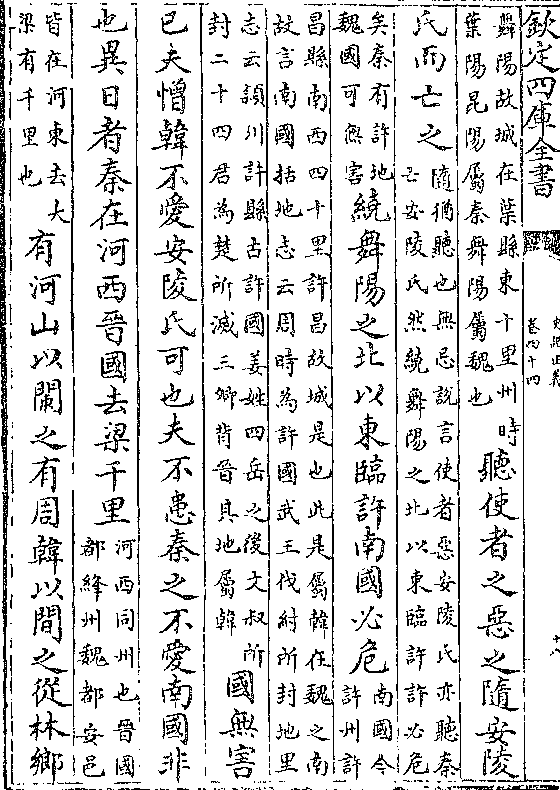 欽定四庫全書
卷四十四
舞陽故城在葉縣東十里州時
葉陽昆陽屬秦舞陽屬魏也
聽使者之惡之隨安陵
氏而亡之
隨猶聽也無忌說言使者惡安陵氏亦聽秦
亡安陵氏然繞舞陽之北以東臨許許必危
矣秦有許地
魏國可無害
繞舞陽之北以東臨許南國必危
南國今
許州許
昌縣南西四十里許昌故城是也此是屬韓在魏之南
故言南國括地志云周時為許國武王伐紂所封地里
志云潁川許縣古許國姜姓四岳之後文叔所
封二十四君為楚所滅三卿背晉其地屬韓
國無害
已夫憎韓不愛安陵氏可也夫不患秦之不愛南國非
也異日者秦在河西晉國去梁千里
河西同州也晉國
都絳州魏都安邑
皆在河東去大
梁有千里也
有河山以闌之有周韓以間之從林鄉